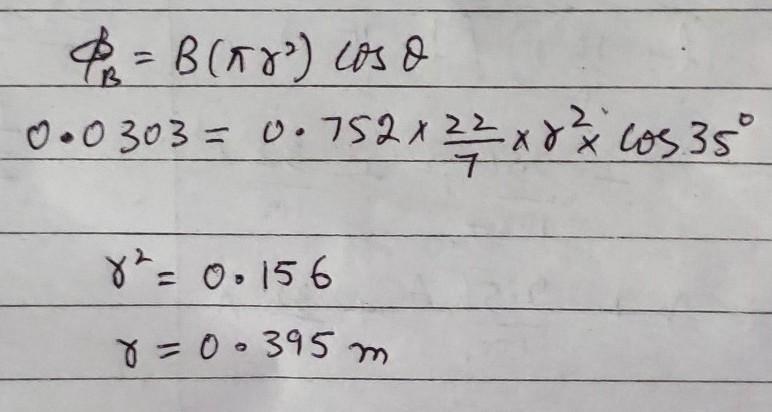 ϕ_B = B(πr²) cos θ
0.0303 = 0.752 × 22/7 × r² × cos 35°
r² = 0.156
r = 0.395 m